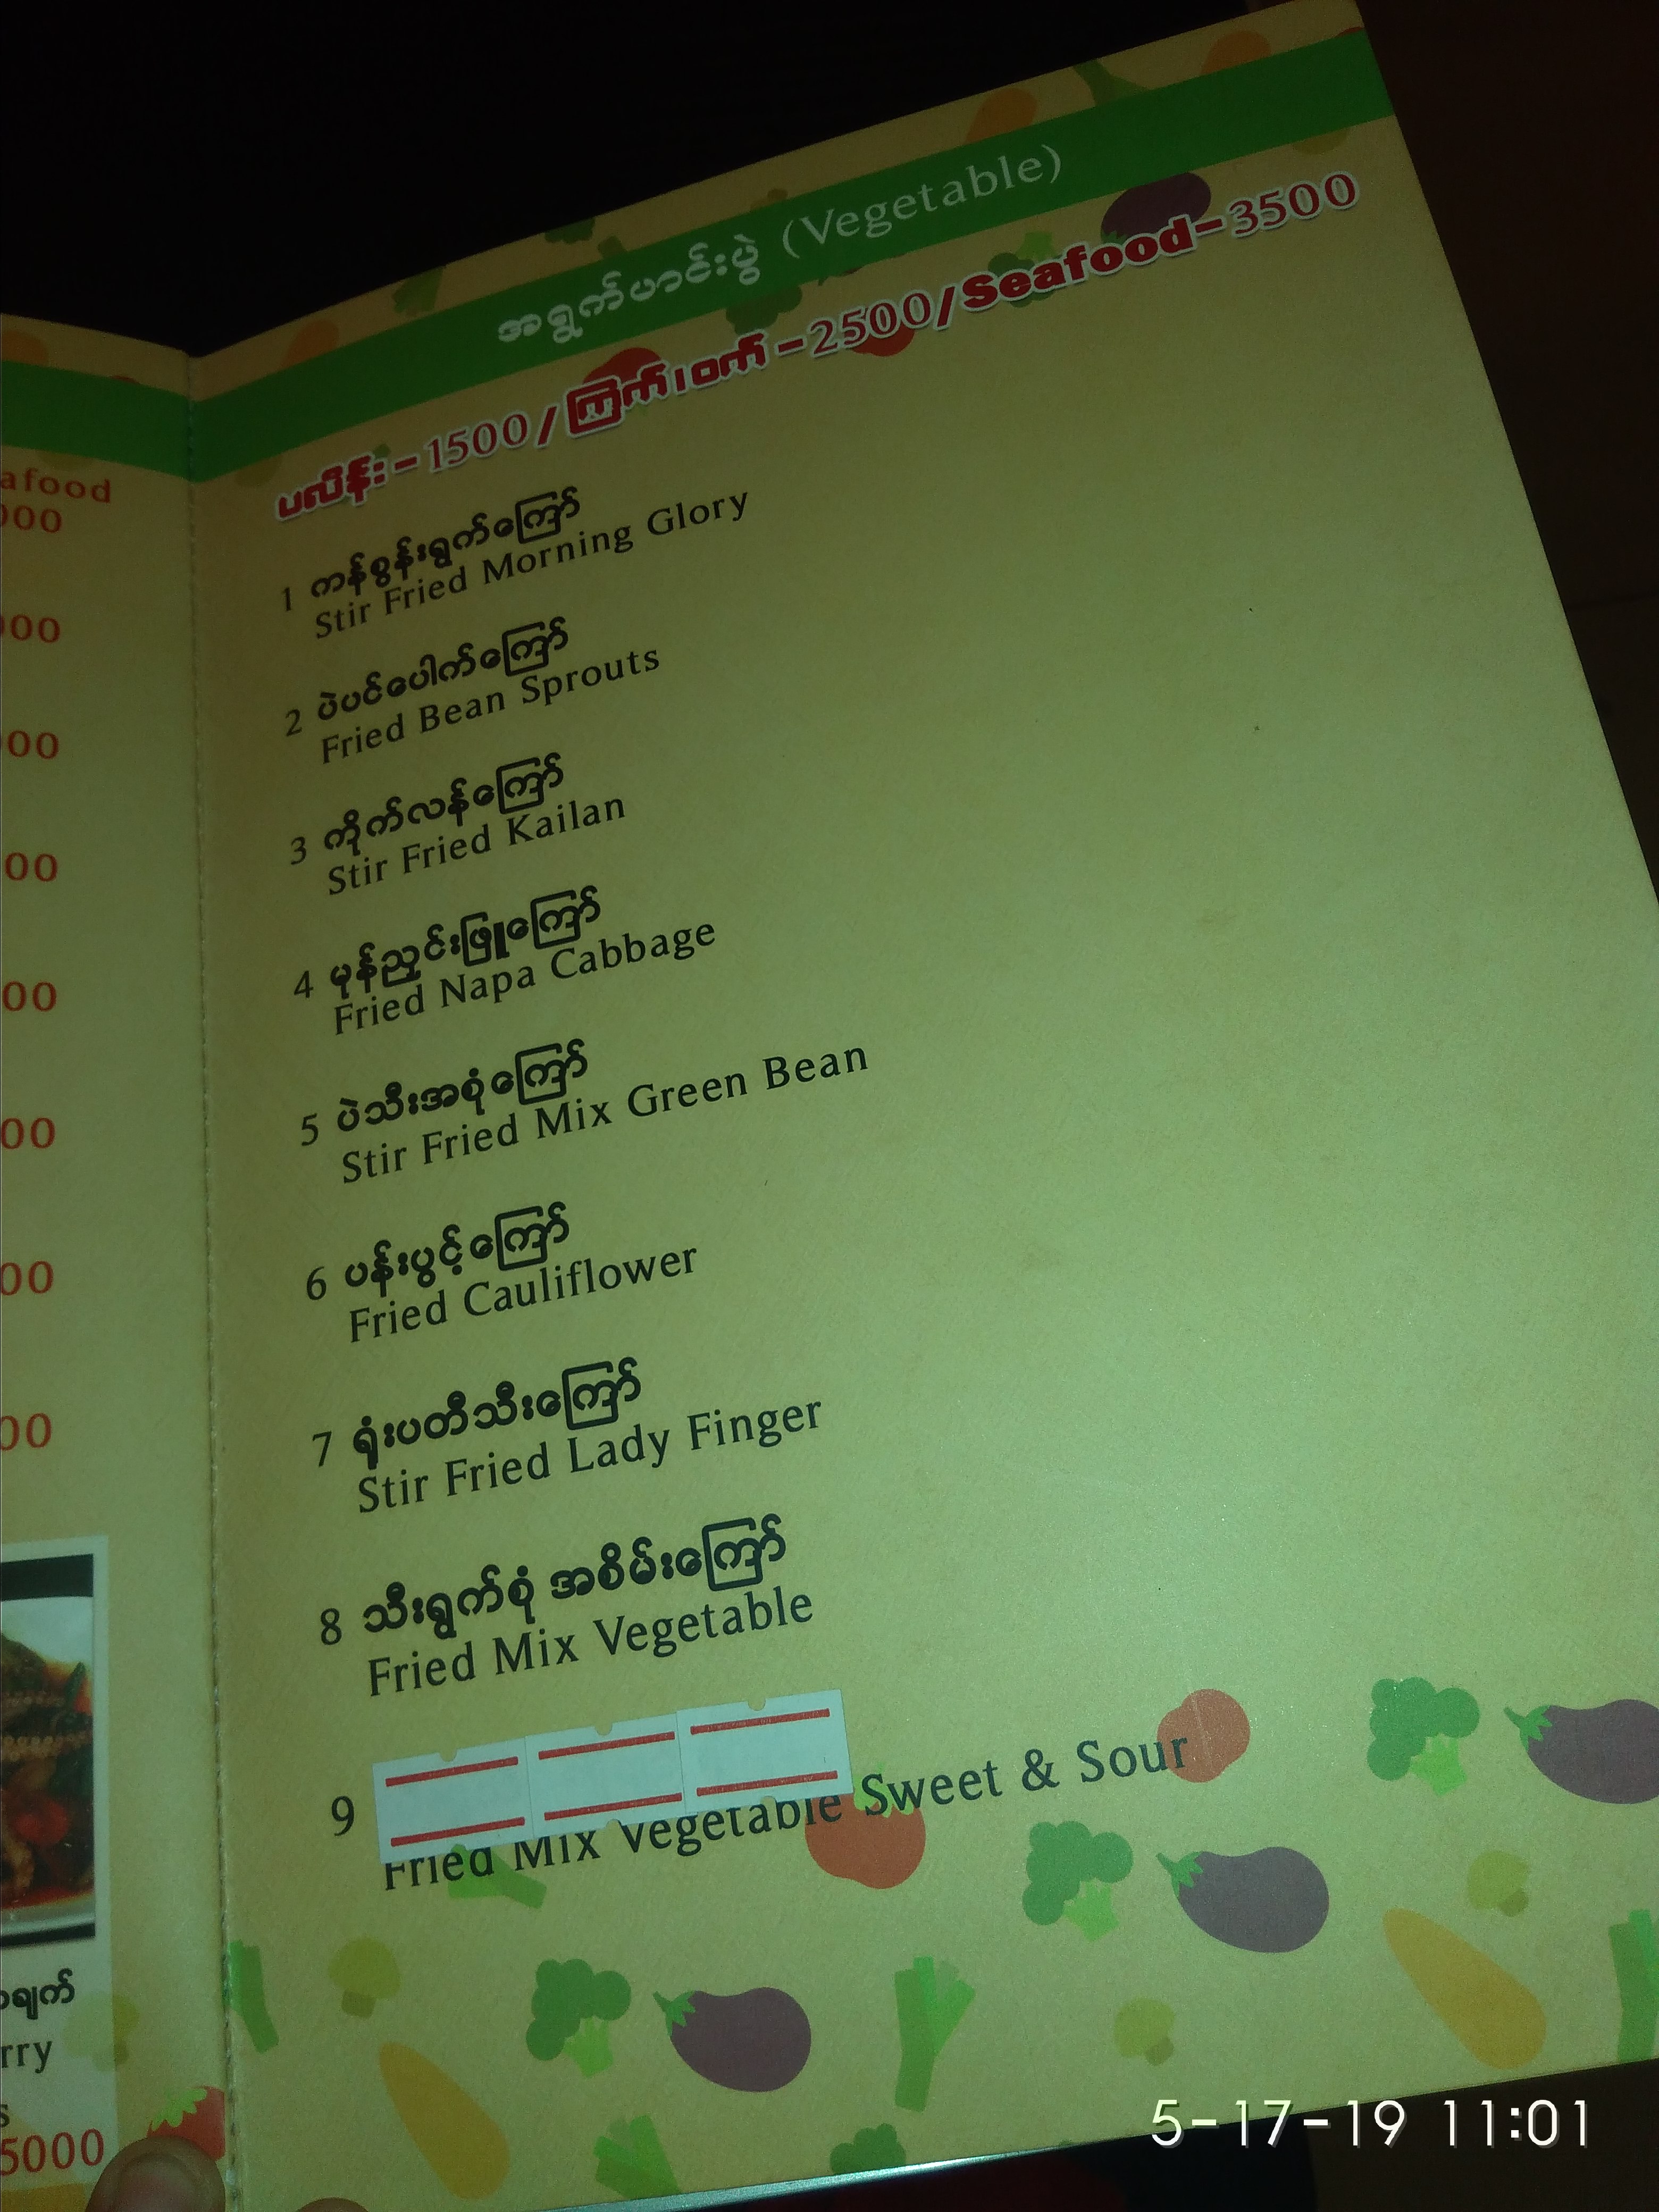 afood
000
00
00
00
00
00
00
00
ချက်
rry
s
5000
အရွက်ဟင်းပွဲ (Vegetable)
ပလိန်း-1500/ကြက်၊ဝက်-2500/Seafood-3500
1 ကန်စွန်းရွက်ကြော်
Stir Fried Morning Glory
2 ပဲပင်ပေါက်ကြော်
Fried Bean Sprouts
3 ကိုက်လန်ကြော်
Stir Fried Kailan
4 မုန်ညှင်းဖြူကြော်
Fried Napa Cabbage
5 ပဲသီးအစုံကြော်
Stir Fried Mix Green Bean
6 ပန်းပွင့်ကြော်
Fried Cauliflower
7 ရုံးပတီသီးကြော်
Stir Fried Lady Finger
8 သီးရွက်စုံ အစိမ်းကြော်
Fried Mix Vegetable
9
Fried Mix Vegetable Sweet & Sour
5-17-19 11:01